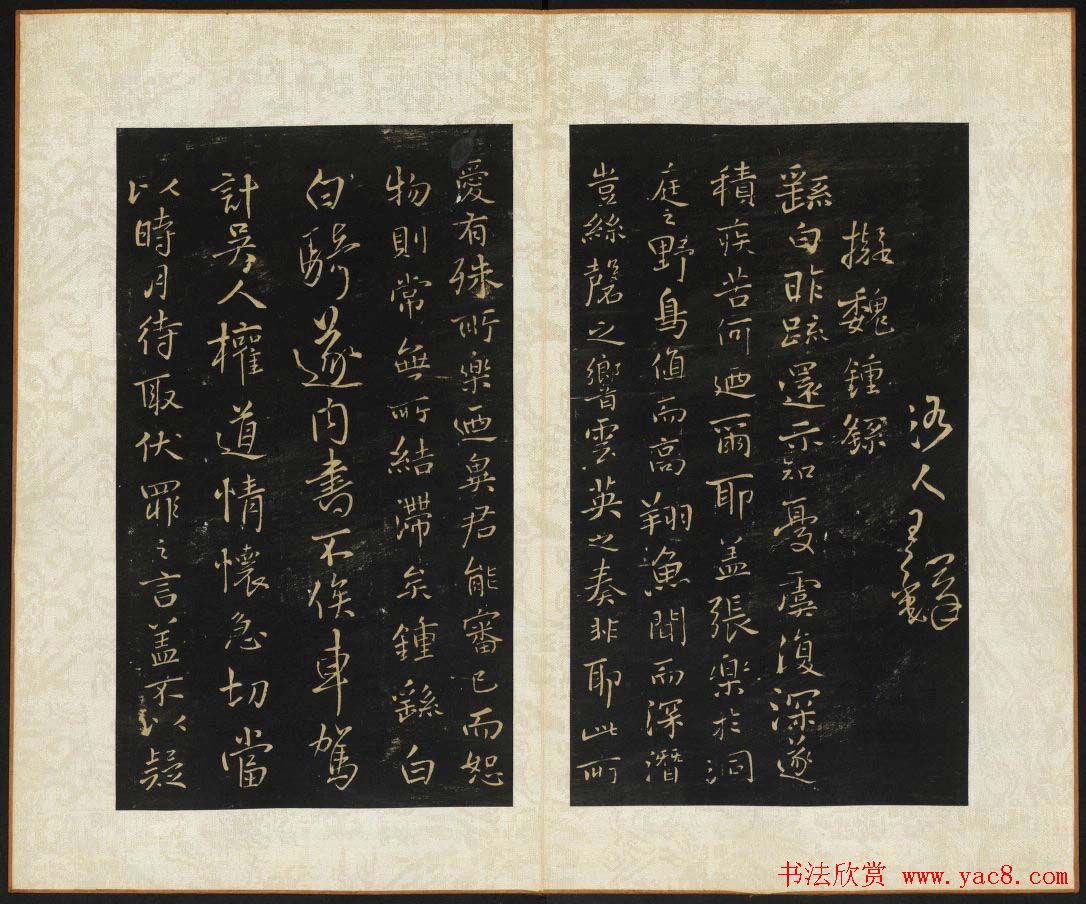 洛人王鐸
擬魏鍾繇
繇白昨疏還示知憂虞復深遂
積疾苦何廼爾耶盖張樂於洞
庭之野鳥值而高翔漁聞而深潛
豈絲磬之響雲英之奏非耶此所
愛有殊所樂廼異君能審己而恕
物則常無所結滯矣鍾繇白
白騎遂內書不俟車駕
計吳人權道情懷急切當
以時月待取伏罪之言盖不以疑
书法欣赏 www.yac8.com